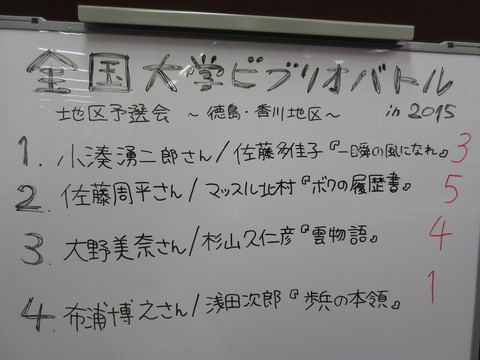 全国大学ビブリオバトル
地区予選会 ～徳島・香川地区～ in 2015
1. 小湊湧二郎さん/佐藤多佳子『一瞬の風になれ』 3
2. 佐藤周平さん/マッスル北村『ボクの履歴書』 5
3. 大野美奈さん/杉山久仁彦『雲物語』 4
4. 布浦博之さん/浅田次郎『歩兵の本領』 1